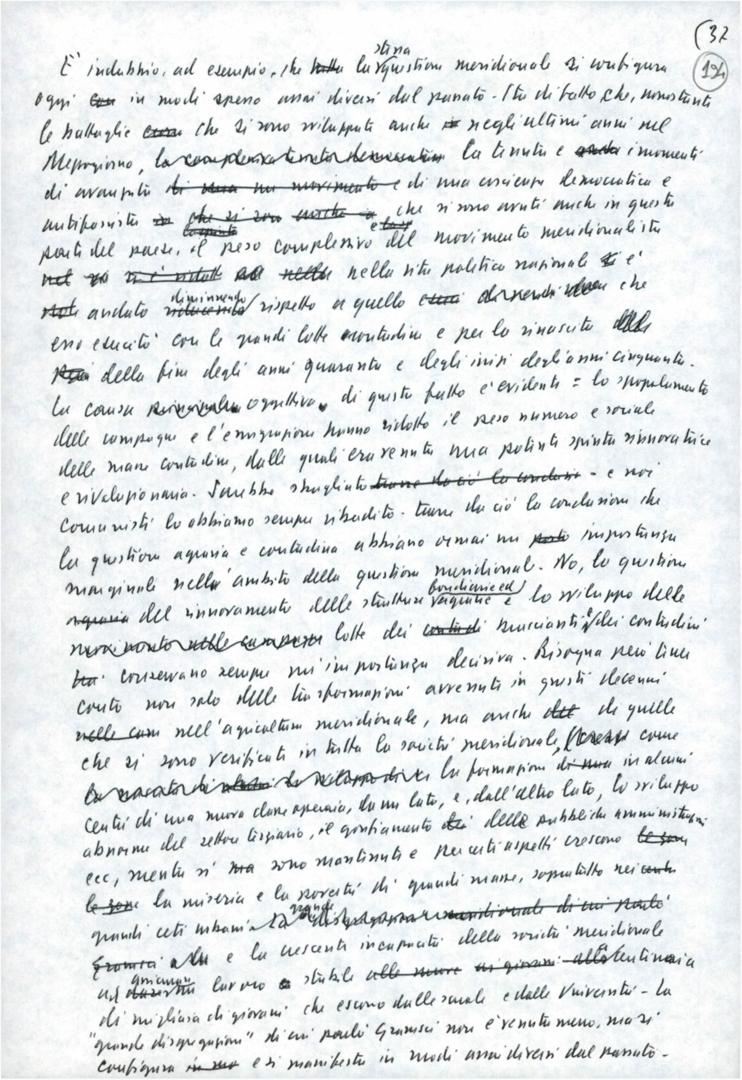 (37
194
È indubbio, ad esempio, che la stessa questione meridionale si configura
oggi in modi spesso assai diversi dal passato. Sta di fatto che, nonostante
le battaglie che si sono sviluppate anche negli ultimi anni nel
Mezzogiorno, la tenuta e i momenti
di avanzata di una coscienza democratica e
antifascista che si sono avuti anche in questa
parte del paese, il peso complessivo del movimento meridionalista
nella vita politica nazionale è
andato diminuendo rispetto a quello che
esso esercitò con le grandi lotte contadine e per la rinascita
della fine degli anni quaranta e degli inizi degli anni cinquanta.
La causa oggettiva di questo fatto è evidente: lo spopolamento
delle campagne e l'emigrazione hanno ridotto il peso numerico e sociale
delle masse contadine, dalle quali era venuta una potente spinta rinnovatrice
e rivoluzionaria. Sarebbe sbagliato - e noi
comunisti lo abbiamo sempre ribadito - trarre da ciò la conclusione che
la questione agraria e contadina abbiano ormai un importanza
marginale nell'ambito della questione meridionale. No, la questione
del rinnovamento delle strutture fondiarie ed agrarie e lo sviluppo delle
lotte dei braccianti e dei contadini
conservano sempre un'importanza decisiva. Bisogna però tener
conto non solo delle trasformazioni avvenute in questi decenni
nell'agricoltura meridionale, ma anche di quelle
che si sono verificate in tutta la società meridionale, come
la formazione in alcuni
centri di una nuova classe operaia, da un lato, e, dall'altro lato, lo sviluppo
abnorme del settore terziario, il gonfiamento delle pubbliche amministrazioni
ecc, mentre si sono mantenute e per certi aspetti crescono
la miseria e la povertà di grandi masse, soprattutto nei
grandi ceti urbani
e la crescente incapacità della società meridionale
ad lavoro stabile alle centinaia
di migliaia di giovani che escono dalle scuole e dalle Università. La
"grande disgregazione" di cui parlò Gramsci non è venuta meno, ma si
configura e si manifesta in modi assai diversi dal passato.